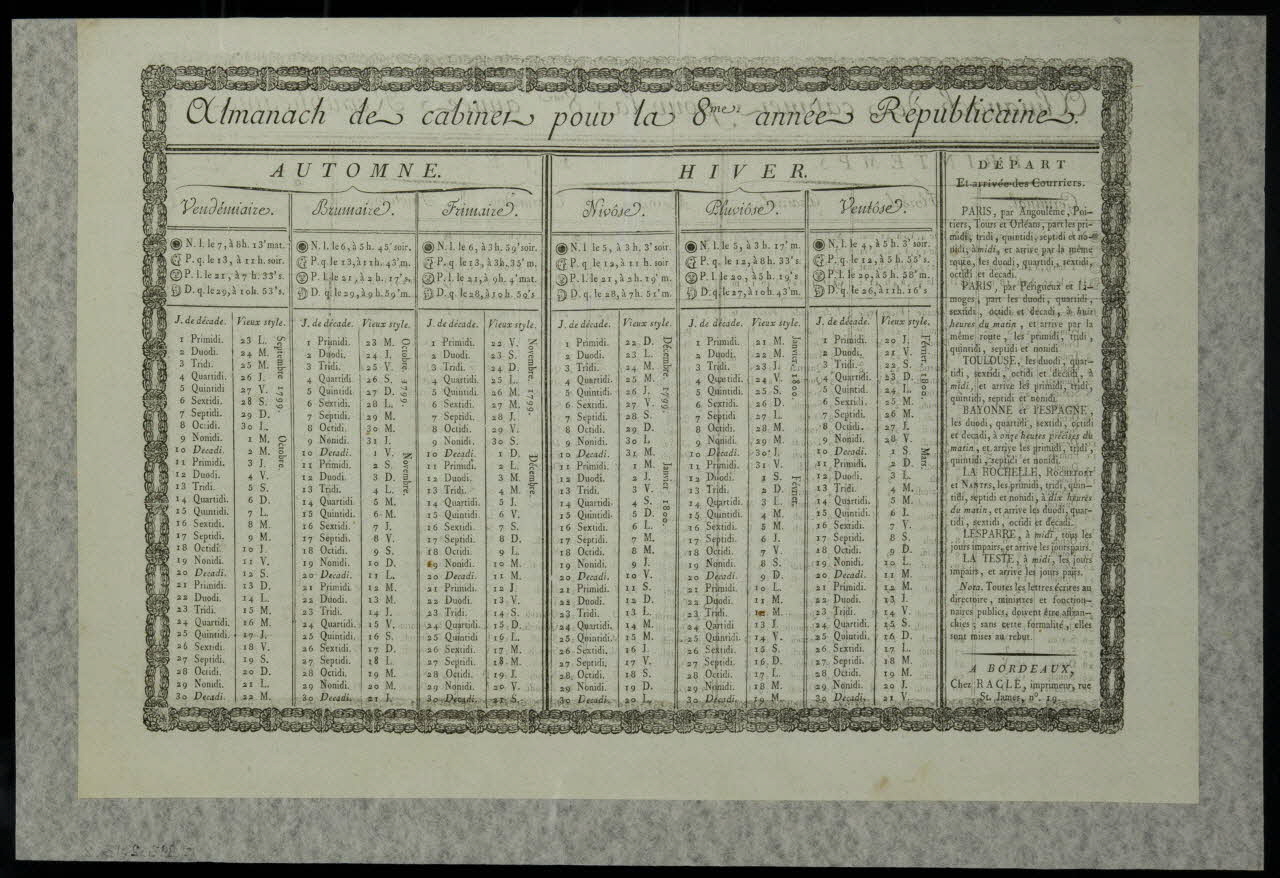 Almanach de cabinet pour la 8.me année Républicaine.
AUTOMNE.
Vendémiaire.
N. l. le 7, à 8 h. 13' mat.
P. q. le 13, à 11 h. soir.
P. l. le 21, à 7 h. 33's.
D. q. le 29, à 10 h. 53's.
J. de décade. Vieux style.
Septembre 1799. Octobre.
1 Primidi. 23 L.
2 Duodi. 24 M.
3 Tridi 25 M.
4 Quartidi 26 J.
5 Quintidi 27 V.
6 Sextidi. 28 S.
7 Septidi. 29 D.
8 Octidi. 30 L.
9 Nonidi. 1 M.
10 Decadi. 2 M.
11 Primidi. 3 J.
12 Duodi. 4 V.
13 Tridi. 5 S.
14 Quartidi. 6 D.
15 Quintidi. 7 L.
16 Sextidi. 8 M.
17 Septidi. 9 M.
18 Octidi. 10 J.
19 Nonidi. 11 V.
20 Decadi. 12 S.
21 Primidi. 13 D.
22 Duodi. 14 L.
23 Tridi. 15 M.
24 Quartidi. 16 M.
25 Quintidi. 17 J.
26 Sextidi. 18 V.
27 Septidi. 19 S.
28 Octidi. 20 D.
29 Nonidi. 21 L.
30 Decadi. 22 M.
Brumaire.
N. l. le 6, à 5 h. 45' soir.
P. q. le 13, à 11 h. 43'm.
P. l. le 21, à 2 h. 17's.
D. q. le 29, à 9 h. 59'm.
J. de décade. Vieux style.
Octobre. 1799. Novembre.
1 Primidi. 23 M.
2 Duodi. 24 J.
3 Tridi. 25 V.
4 Quartidi 26 S.
5 Quintidi. 27 D.
6 Sextidi. 28 L.
7 Septidi. 29 M.
8 Octidi. 30 M.
9 Nonidi. 31 J.
10 Decadi. 1 V.
11 Primidi. 2 S.
12 Duodi. 3 D.
13 Tridi. 4 L.
14 Quartidi. 5 M.
15 Quintidi. 6 M.
16 Sextidi. 7 J.
17 Septidi. 8 V.
18 Octidi. 9 S.
19 Nonidi. 10 D.
20 Decadi. 11 L.
21 Primidi. 12 M.
22 Duodi. 13 M.
23 Tridi. 14 J.
24 Quartidi 15 V.
25 Quintidi. 16 S.
26 Sextidi. 17 D.
27 Septidi. 18 L.
28 Octidi. 19 M.
29 Nonidi. 20 M.
30 Decadi. 21 J.
Frimaire.
N. l. le 6, à 3 h. 59' soir.
P. q. le 13, à 3 h. 35' m.
P. l. le 21, à 9 h. 4' mat.
D. q. le 28, à 10 h. 59's
J. de décade. Vieux style.
Novembre. 1799. Décembre.
1 Primidi. 22 V.
2 Duodi. 23 S.
3 Tridi. 24 D.
4 Quartidi. 25 L.
5 Quintidi. 26 M.
6 Sextidi. 27 M.
7 Septidi. 28 J.
8 Octidi. 29 V.
9 Nonidi. 30 S.
10 Decadi. 1 D.
11 Primidi. 2 L.
12 Duodi. 3 M.
13 Tridi. 4 M.
14 Quartidi. 5 J.
15 Quintidi. 6 V.
16 Sextidi. 7 S.
17 Septidi. 8 D.
18 Octidi. 9 L.
19 Nonidi. 10 M.
20 Decadi. 11 M.
21 Primidi. 12 J.
22 Duodi. 13 V.
23 Tridi. 14 S.
24 Quartidi. 15 D.
25 Quintidi. 16 L.
26 Sextidi. 17 M.
27 Septidi. 18 M.
28 Octidi. 19 J.
29 Nonidi. 20 V.
30 Décadi. 21 S.
HIVER.
Nivôse.
N. l. le 5, à 3 h. 3' soir.
P. q le 12, à 11 h. soir
P. l. le 21, à 2 h. 19' m.
D. q. le 28, à 7 h. 51'm.
J. de décade. Vieux style.
Décembre. 1799. Janvier 1800.
1 Primidi. 22 D.
2 Duodi. 23 L.
3 Tridi. 24 M.
4 Quartidi. 25 M.
5 Quintidi. 26 J.
6 Sextidi. 27 V.
7 Septidi. 28 S.
8 Octidi. 29 D.
9 Nonidi. 30 L
10 Decadi. 31 M.
11 Primidi. 1 M.
12 Duodi. 2 J.
13 Tridi. 3 V.
14 Quartidi. 4 S.
15 Quintidi. 5 D.
16 Sextidi. 6 L.
17 Septidi. 7 M.
18 Octidi. 8 M.
19 Nonidi. 9 J.
20 Decadi. 10 V.
21 Primidi. 11 S.
22 Duodi. 12 D.
23 Tridi. 13 L.
24 Quartidi. 14 M.
25 Quintidi. 15 M.
26 Sextidi. 16 J.
27 Septidi. 17 V.
28 Octidi. 18 S.
29 Nonidi. 19 D.
30 Decadi. 20 L.
Pluviôse.
N. l. le 5, à 3 h. 17' m.
P. q. le 12, à 8 h. 33's.
P. l. le 20, à 5 h. 19's
D. q. le 27, à 10 h. 43'm.
J. de décade. Vieux style.
Janvier 1800. Février.
1 Primidi. 21 M.
2 Duodi. 22 M.
3 Tridi. 23 J.
4 Quartidi 24 V.
5 Quintidi. 25 S.
6 Sextidi. 26 D.
7 Septidi. 27 L.
8 Octidi. 28 M.
9 Nonidi. 29 M.
10 Decadi. 30 J.
11 Primidi. 31 V.
12 Duodi. 1 S.
13 Tridi. 2 D.
14 Quartidi. 3 L.
15 Quintidi. 4 M.
16 Sextidi. 5 M.
17 Septidi. 6 J.
18 Octidi. 7 V.
19 Nonidi. 8 S.
20 Decadi. 9 D.
21 Primidi. 10 L.
22 Duodi. 11 M.
23 Tridi. 12 M.
24 Quartidi. 13 J
25 Quintidi. 14 V.
26 Sextidi. 15 S.
27 Septidi. 16 D.
28 Octidi. 17 L.
29 Nonidi. 18 M.
30 Décadi. 19 M.
Ventôse.
N. l. le 4, à 5 h. 3' soir.
P. q. le 12, à 5 h. 55's.
P. l. le 20, à 5 h. 58'm.
D. q. le 26, à 11 h. 16's
J. de décade. Vieux style.
Février. 1800. Mars.
1 Primidi. 20 J.
2 Duodi. 21 V.
3 Tridi. 22 S.
4 Quartidi. 23 D.
5 Quintidi. 24 L.
6 Sextidi. 25 M.
7 Septidi. 26 M.
8 Octidi. 27 J.
9 Nonidi. 28 V.
10 Decadi. 1 S
11 Primidi. 2 D.
12 Duodi. 3 L.
13 Tridi. 4 M.
14 Quartidi. 5 M.
15 Quintidi. 6 J.
16 Sextidi. 7 V.
17 Septidi. 8 S.
18 Octidi. 9 D.
19 Nonidi. 10 L.
20 Decadi. 11 M
21 Primidi. 12 M.
22 Duodi. 13 J.
23 Tridi. 14 V.
24 Quartidi. 15 S.
25 Quintidi. 16 D.
26 Sextidi. 17 L.
27 Septidi. 18 M.
28 Octidi. 19 M.
29 Nonidi. 20 J.
30 Décadi. 21 V.
DÉPART
Et arrivée des Courriers.
PARIS, par Angoulême, Poi-
tiers, Tours et Orléans, part les pri-
midi, tridi, quintidi, septidi et no-
nidi, à midi, et arrive par la même
route, les duodi, quartidi, sextidi,
octidi et decadi.
PARIS, par Périgueux et Li-
moges, part les duodi, quartidi,
sextidi, octidi et décadi, à huit
heures du matin, et arrive par la
même route, les primidi, tridi,
quintidi, septidi et nonidi
TOULOUSE, les duodi, quar-
tidi, sextidi, octidi et décadi, à
midi, et arrive les primidi, tridi,
quintidi, septidi et nonidi.
BAYONNE et l'ESPAGNE,
les duodi, quartidi, sextidi, octidi
et decadi, à onze heures précises du
matin, et arrive les primidi, tridi,
quintidi, septidi et nonidi.
LA ROCHELLE, ROCHEFORT
et NANTES, les primidi, tridi, quin-
tidi, septidi et nonidi, à dix heures
du matin, et arrive les duodi, quar-
tidi, sextidi, octidi et décadi.
LESPARRE, à midi, tous les
jours impairs, et arrive les jours pairs.
LA TESTE, à midi, les jours
impairs, et arrive les jours pairs.
Nota. Toutes les lettres écrites au
directoire, ministres et fonction-
naires publics, doivent être affran-
chies; sans cette formalité, elles
sont mises au rebut.
A BORDEAUX,
Chez RACLE, imprimeur, rue
St. James, n°. 19.